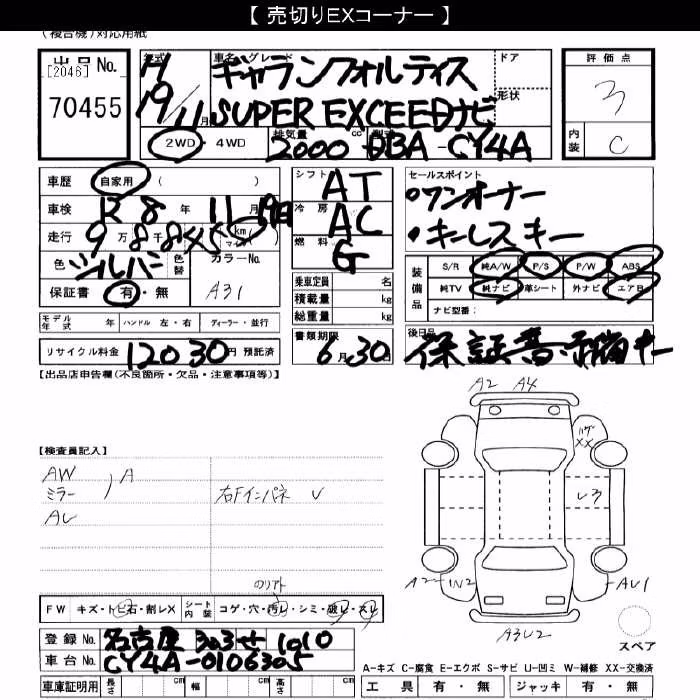 【 売切りEXコーナー 】
(複合機)対応用紙
出品No.
[2046]
70455
年式 車名 グレード ドア
19/11 月
ギャランフォルティス
SUPER EXCEEDナビ
形状
2WD・4WD
排気量 cc 型式
2000 DBA-CY4A
評価点
3
内装
C
車歴 自家用 ( )
車検 R 8 年 11 月 19日
走行 9万88××5 km マイル
色 シルバー 色替 カラーNo. A31
保証書 有・無
シフト AT
冷房 AC
燃料 G
乗車定員 名
積載量 kg
総重量 kg
セールスポイント
・ワンオーナー
・キーレスキー
装備品
S/R 純A/W P/S P/W ABS
純TV 純ナビ 革シート 外ナビ エアB
ナビ型番:
モデル年式 年 ハンドル 左・右 ディーラー・並行
リサイクル料金 12030円 預託済
書類期限 6月30日
後日品 保証書・予備キー
【出品店申告欄(不良箇所・欠品・注意事項等)】
【検査員記入】
AW
ミラー A
AL
右Fインパネ V
A2 A4
ハゲ
XX
レ3
A2 IN2
AU1
A3U2
スペア
のリアト
FW キズ・トビ石・割レX シート内装 コゲ・穴・汚レ・シミ・破レ・スレ
登録No. 名古屋 303 せ 1010
車台No. CY4A-0106305
車庫証明用 長さ cm 幅 cm 高さ cm
A-キズ C-腐食 E-エクボ S-サビ U-凹ミ W-補修 XX-交換済
工具 有・無 ジャッキ 有・無